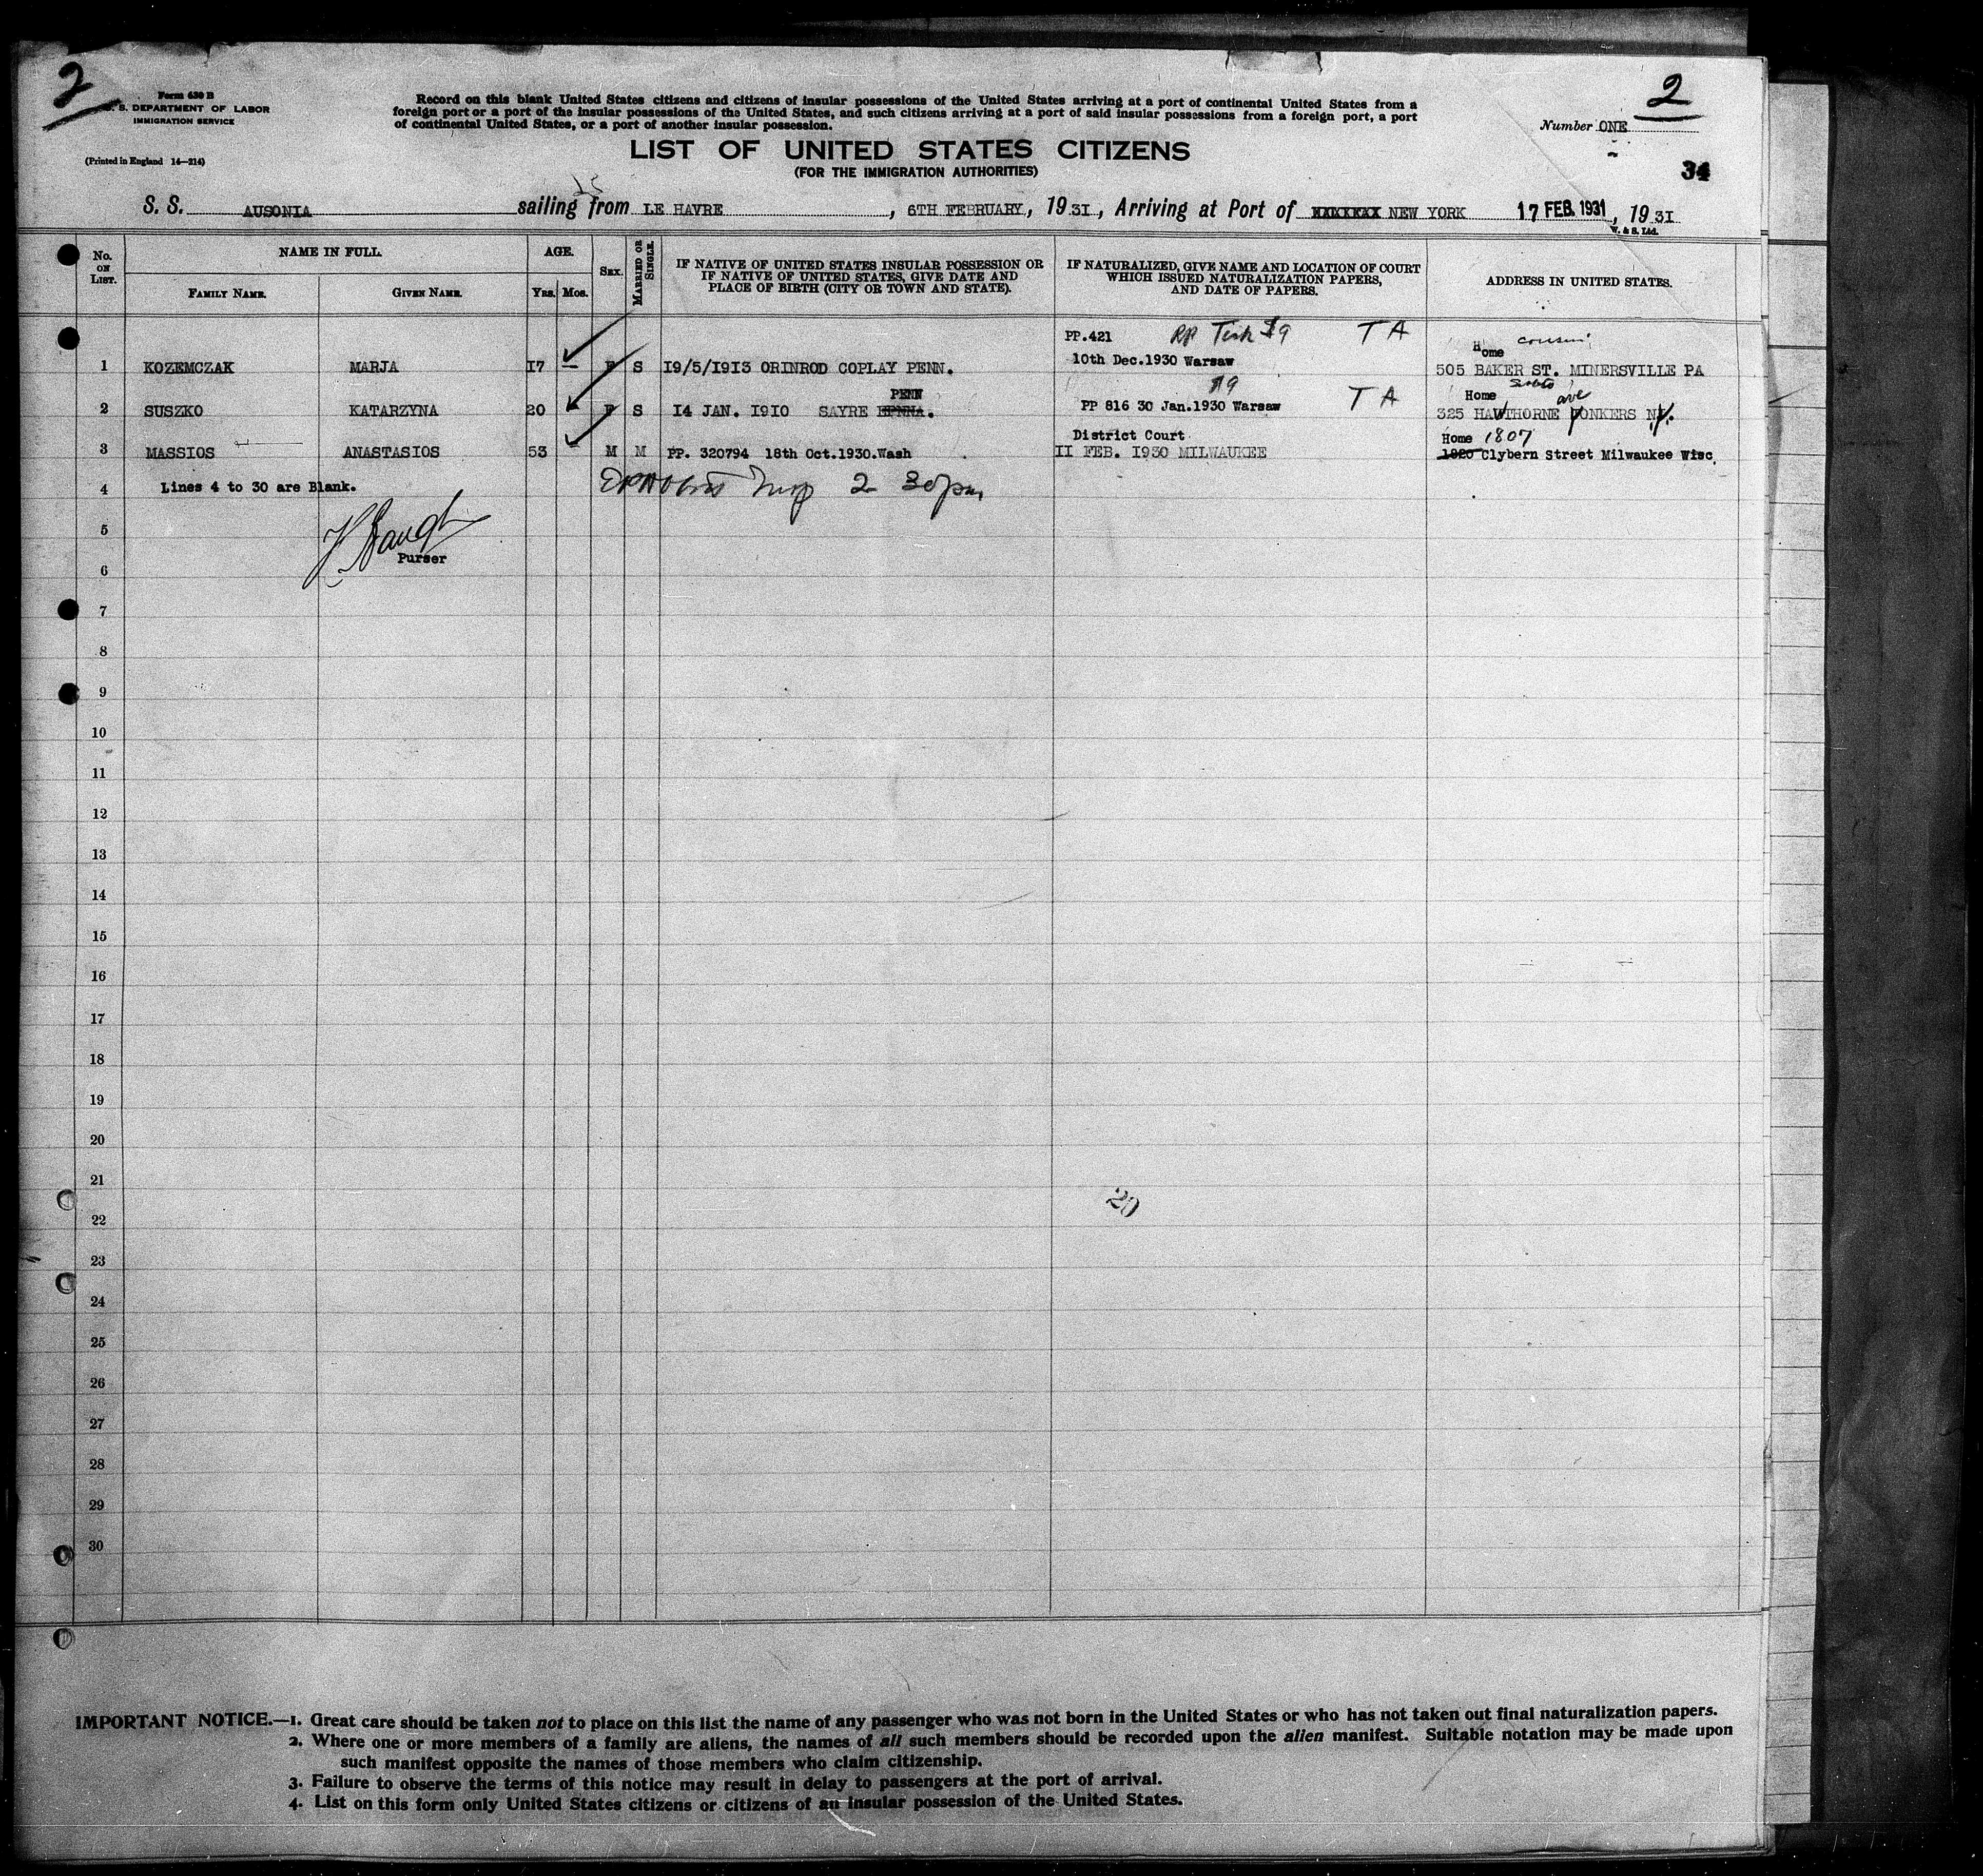 2
2
Form 630 B
U. S. DEPARTMENT OF LABOR
IMMIGRATION SERVICE
(Printed in England 14—214)
Record on this blank United States citizens and citizens of insular possessions of the United States arriving at a port of continental United States from a
foreign port or a port of the insular possessions of the United States, and such citizens arriving at a port of said insular possessions from a foreign port, a port
of continental United States, or a port of another insular possession.
Number ONE
LIST OF UNITED STATES CITIZENS
(FOR THE IMMIGRATION AUTHORITIES)
34
S. S. AUSONIA sailing from LE HAVRE, 6TH FEBRUARY, 1931, Arriving at Port of NEW YORK 17 FEB. 1931, 1931
W. & S. Ltd.
No. ON LIST.
NAME IN FULL.
FAMILY NAME. GIVEN NAME.
AGE.
YRS. MOS.
SEX.
MARRIED OR SINGLE.
IF NATIVE OF UNITED STATES INSULAR POSSESSION OR
IF NATIVE OF UNITED STATES, GIVE DATE AND
PLACE OF BIRTH (CITY OR TOWN AND STATE).
IF NATURALIZED, GIVE NAME AND LOCATION OF COURT
WHICH ISSUED NATURALIZATION PAPERS,
AND DATE OF PAPERS.
ADDRESS IN UNITED STATES.
PP.421 $9 T A
Home cousin
1 KOZEMCZAK MARJA 17 — F S 19/5/1913 ORINROD COPLAY PENN. 10th Dec.1930 Warsaw 505 BAKER ST. MINERSVILLE PA
PENN $9 Home ave
2 SUSZKO KATARZYNA 20 - F S 14 JAN. 1910 SAYRE PP 816 30 Jan.1930 Warsaw T A 325 HAWTHORNE YONKERS N.Y.
District Court Home 1807
3 MASSIOS ANASTASIOS 53 - M M PP. 320794 18th Oct.1930.Wash 11 FEB. 1930 MILWAUKEE 1820 Clybern Street Milwaukee Wisc.
4 Lines 4 to 30 are Blank. 2 30 pm
5
Purser
6
7
8
9
10
11
12
13
14
15
16
17
18
19
20
21
20
22
23
24
25
26
27
28
29
30
IMPORTANT NOTICE.—1. Great care should be taken not to place on this list the name of any passenger who was not born in the United States or who has not taken out final naturalization papers.
2. Where one or more members of a family are aliens, the names of all such members should be recorded upon the alien manifest. Suitable notation may be made upon
such manifest opposite the names of those members who claim citizenship.
3. Failure to observe the terms of this notice may result in delay to passengers at the port of arrival.
4. List on this form only United States citizens or citizens of an insular possession of the United States.